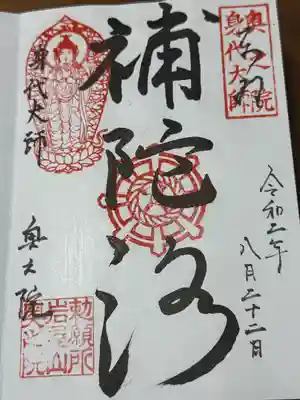 身代大師
令和二年
八月二十二日
補陀洛
身代大師
奥之院
勅願所
岩屋山
奥之院